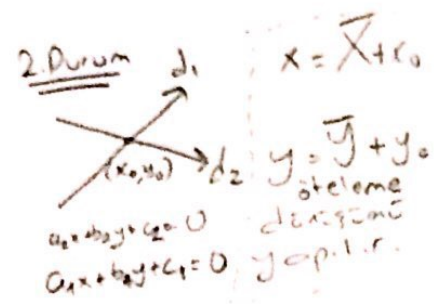 2. Durum
d₁
d₂
(x₀,y₀)
a₂x+b₂y+c₂=0
a₁x+b₁y+c₁=0
x = X̅+x₀
y = y̅+y₀
öteleme
dönüşümü
yapılır.